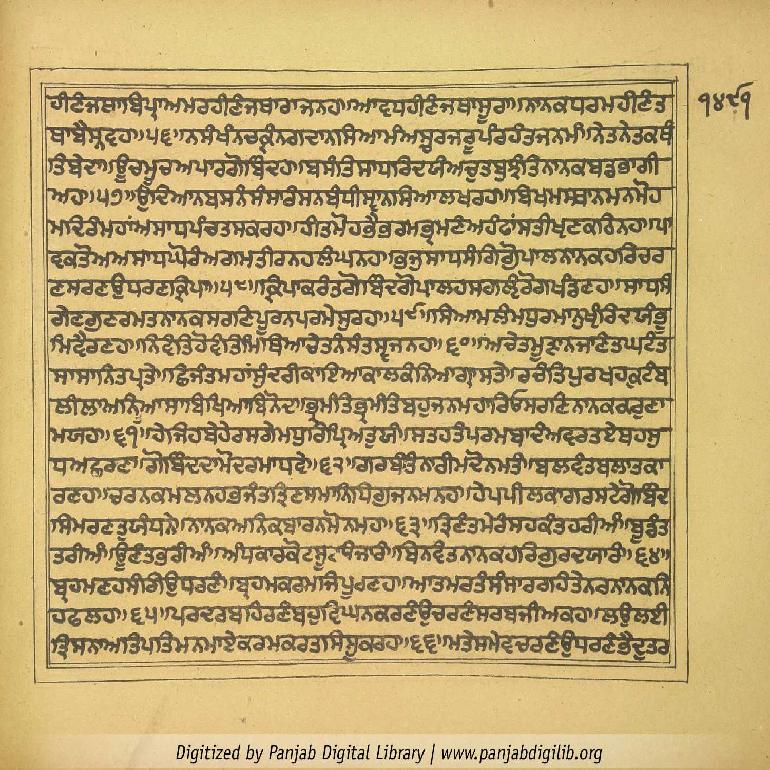 ਹੀਣੰਜਥਾਬਿਪ੍ਰਾਅਮਰਹੀਣੰਜਥਾਰਾਜਨਹ॥ਆਵਧਹੀਣੰਜਥਾਸੂਰਾ॥ਨਾਨਕਧਰਮਹੀਣੰਤ
੧੪੯੧
ਥਾਬੈਸ੍ਨਵਹ॥੫੬॥ਨਸੰਖੰਨਚਕ੍ਰੰਨਗਦਾਨਸਿਆਮੰ॥ਅਸ੍ਚਰਜਰੂਪੰਰਹੰਤਜਨਮੰ॥ਨੇਤਨੇਤਕਥੰ
ਤਿਬੇਦਾ॥ਊਚਮੂਚਅਪਾਰਗੋਬਿੰਦਹ॥ਬਸੰਤਿਸਾਧਰਿਦਯੰਅਚੁਤਬੁਝੰਤਿਨਾਨਕਬਡਭਾਗੀ
ਅਹ॥੫੭॥ਉਦਿਆਨਬਸਨੰਸੰਸਾਰੰਸਨਬੰਧੀਸ੍ਵਾਨਸਿਆਲਖਰਹ॥ਬਿਖਮਸਥਾਨਮਨਮੋਹ
ਮਦਿਰੰਮਹਾਂਅਸਾਧਪੰਚਤਸਕਰਹ॥ਹੀਤਮੋਹਭੈਭਰਮਭ੍ਰਮਣੰਅਹੰਫਾਂਸਤੀਖ੍ਯਣਕਠਿਨਹ॥ਪਾ
ਵਕਤੋਅਅਸਾਧਘੋਰੰਅਗਮਤੀਰਨਹਲੰਘਨਹ॥ਭਜੁਸਾਧਸੰਗਿਗੋੁਪਾਲਨਾਨਕਹਰਿਚਰ
ਣਸਰਣਉਧਰਣਕ੍ਰਿਪਾ॥੫੮॥ਕ੍ਰਿਪਾਕਰੰਤਗੋਬਿੰਦਗੋਪਾਲਹਸਗਲ੍ਯੰਰੋਗਖੰਡਣਹ॥ਸਾਧਸੰ
ਗੇਣਗੁਣਰਮਤਨਾਨਕਸਰਣਿਪੂਰਨਪਰਮੇਸੁਰਹ॥੫੯॥ਸਿਆਮਲੰਮਧੁਰਮਾਨੁਖ੍ਯੰਰਿਦਯੰਭੂ
ਮਿਵੈਰਣਹ॥ਨਿਵੰਤਿਹੋਵੰਤਿਮਿਥਿਆਚੇਤਨੰਸੰਤਸ੍ਵਜਨਹ॥੬੦॥ਅਚੇਤਮੂੜਾਨਜਾਣੰਤਘਟੰਤ
ਸਾਸਾਨਿਤਪ੍ਰਤੇ॥ਛਿਜੰਤਮਹਾਂਸੁੰਦਰੀਕਾਂਇਆਕਾਲਕੰਨਿਆਗ੍ਰਾਸਤੇ॥ਰਚੰਤਿਪੁਰਖਹਕੁਟੰਬ
ਲੀਲਾਅਨਿਤਆਸਾਬਿਖਿਆਬਿਨੋਦ॥ਭ੍ਰਮੰਤਿਭ੍ਰਮੰਤਿਬਹੁਜਨਮਹਾਰਿਓਸਰਣਿਨਾਨਕਕਰੁਣਾ
ਮਯਹ॥੬੧॥ਹੇਜਿਹਬੇਹੇਰਸਗੇਮਧੁਰਪ੍ਰਿਅਤੁਯੰ॥ਸਤਹਤੰਪਰਮਬਾਦੰਅਵਰਤਏਥਹਸੁ
ਧਅਛਰਣਾ॥ਗੋਬਿੰਦਦਾਮੋਦਰਮਾਧਵੇ॥੬੨॥ਗਰਬੰਤਿਨਾਰੀਮਦੋਨਮਤੰ॥ਬਲਵੰਤਬਲਾਤਕਾ
ਰਣਹ॥ਚਰਨਕਮਲਨਹਭਜੰਤਤ੍ਰਿਣਸਮਾਨਿਧ੍ਰਿਗੁਜਨਮਨਹ॥ਹੇਪਪੀਲਕਾਗਰਸਟੇਗੋਬਿੰਦ
ਸਿਮਰਣਤੁਯੰਧਨੇ॥ਨਾਨਕਅਨਿਕਬਾਰਨਮੋਨਮਹ॥੬੩॥ਤ੍ਰਿਣੰਤਮੇਰੰਸਹਕੰਤਹਰੀਅੰ॥ਬੂਡੰਤ
ਤਰੀਅੰ॥ਊਣੰਤਭਰੀਅੰ॥ਅੰਧਕਾਰਕੋਟਸੂਰਉਜਾਰੰ॥ਬਿਨਵੰਤਨਾਨਕਹਰਿਗੁਰਦਯਾਰੰ॥੬੪॥
ਬ੍ਰਹਮਣਹਸੰਗਿਉਧਰਣੰ॥ਬ੍ਰਹਮਕਰਮਜਿਪੂਰਣਹ॥ਆਤਮਰਤੰਸੰਸਾਰਗਹੰਤੇਨਰਨਾਨਕਨਿ
ਹਫਲਹ॥੬੫॥ਪਰਦਰਬਹਿਰਣੰਬਹੁਵਿਘਨਕਰਣੰਉਚਰਣੰਸਰਬਜੀਅਕਹ॥ਲਉਲਈ
ਤ੍ਰਿਸਨਾਅਤਿਪਤਿਮਨਮਾਏਕਰਮਕਰਤਸਿਸੂਕਰਹ॥੬੬॥ਮਤੇਸਮੇਵਚਰਣੰਉਧਰਣੰਭੈਦੁਤਰ
Digitized by Panjab Digital Library | www.panjabdigilib.org